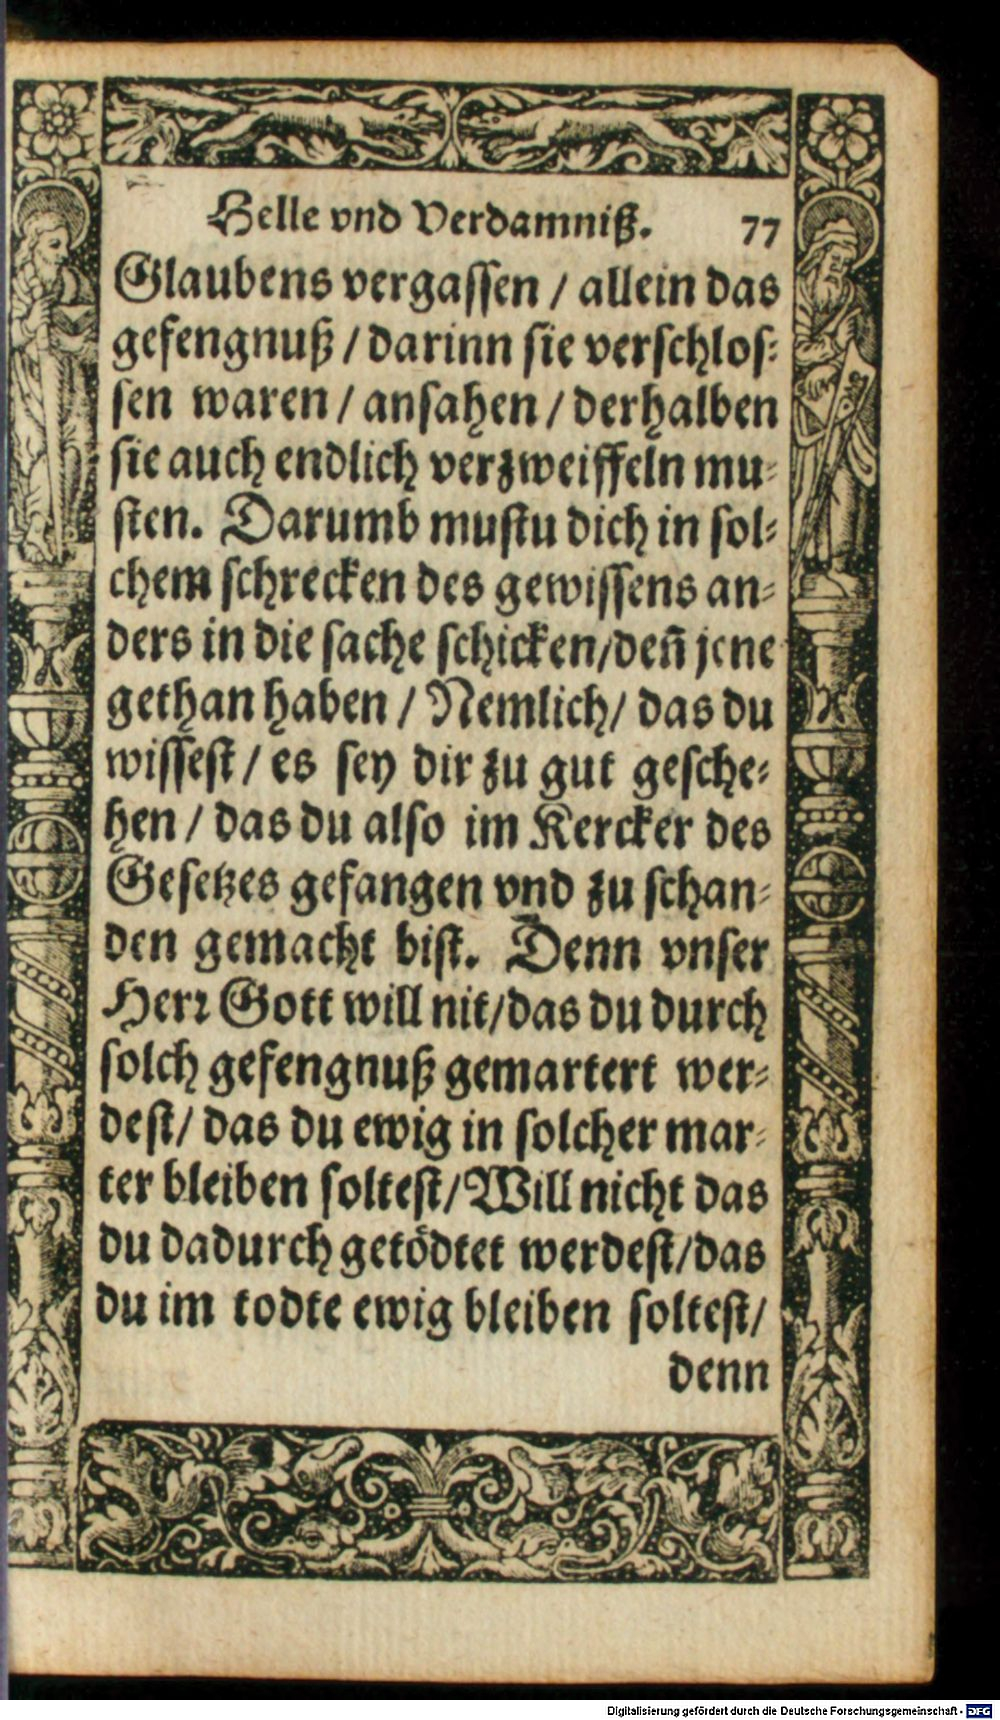 Helle vnd Verdamniß. 77
Glaubens vergassen / allein das
gefengnuß / darinn sie verschlos⸗
sen waren / ansahen / derhalben
sie auch endlich verzweiffeln mu⸗
sten. Darumb mustu dich in sol⸗
chem schrecken des gewissens an⸗
ders in die sache schicken/deñ jene
gethan haben / Nemlich/ das du
wissest / es sey dir zu gut gesche⸗
hen / das du also im Kercker des
Gesetzes gefangen vnd zu schan⸗
den gemacht bist. Denn vnser
Herr Gott will nit/das du durch
solch gefengnuß gemartert wer⸗
dest/ das du ewig in solcher mar⸗
ter bleiben soltest/Will nicht das
du dadurch getödtet werdest/das
du im todte ewig bleiben soltest/
denn
Digitalisierung gefördert durch die Deutsche Forschungsgemeinschaft - DFG